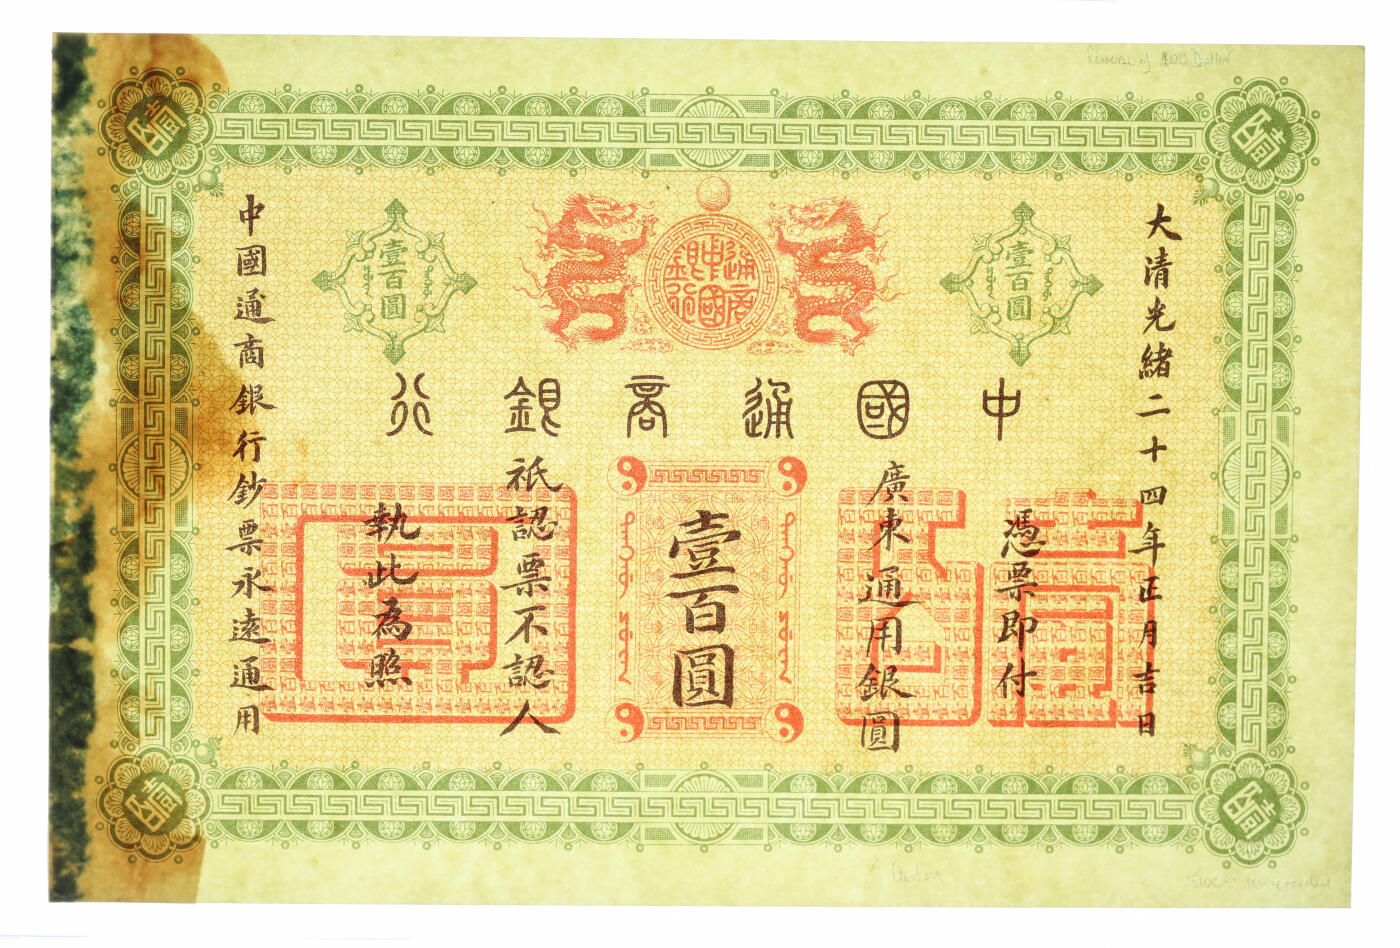 Reverse of 100 Dollar
大清光緒二十四年正月吉日
通商
中國
銀行
壹百圓
壹百圓
中國通商銀行
憑票即付
廣東通用銀圓
壹百圓
祇認票不認人
執此為照
中國通商銀行鈔票永遠通用
壹百圓
Canton